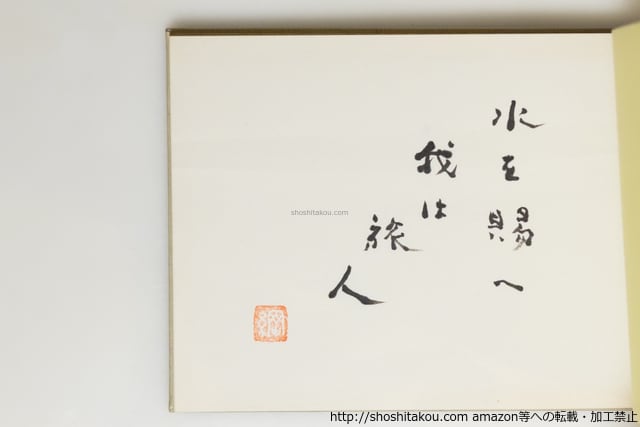 水を賜へ
我は
旅
人
shoshitakou.com
http://shoshitakou.com amazon等への転載・加工禁止